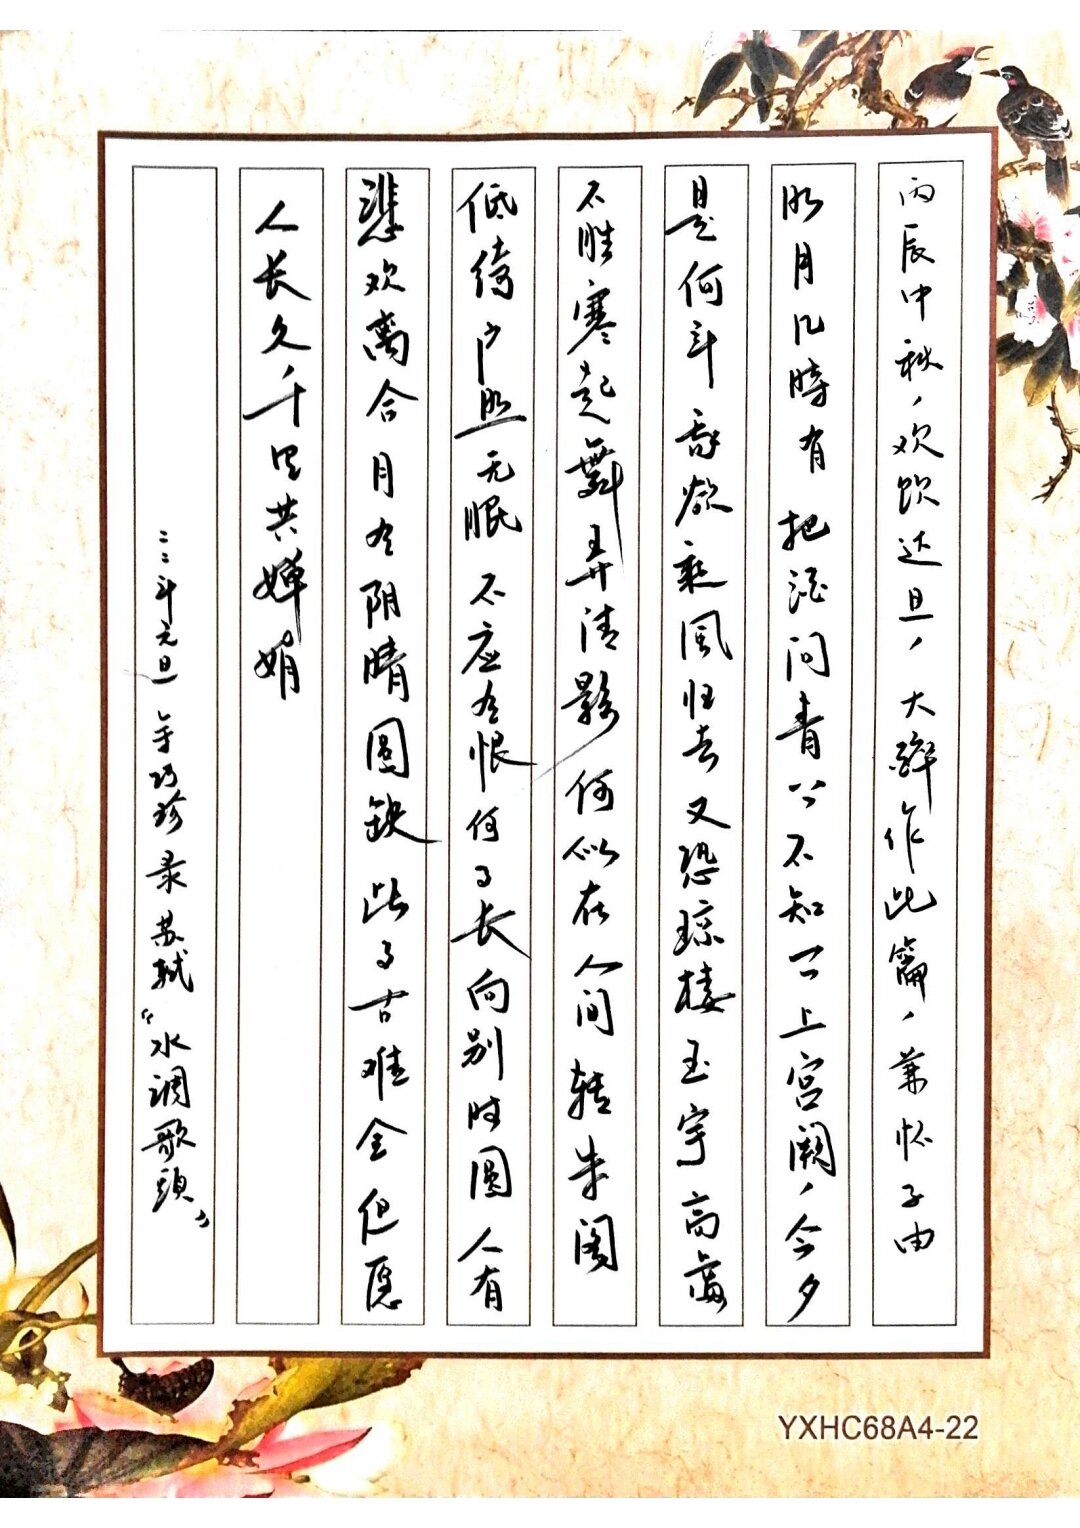 丙辰中秋,欢饮达旦,大醉作此篇,兼怀子由
明月几時有把酒问青天不知天上宫阙,今夕
是何年我欲乘風归去又恐琼楼玉宇高處
不胜寒起舞弄清影何似在人间转朱阁
低绮户照无眠不应有恨何事长向别时圆人有
悲欢离合月有阴晴圆缺此事古难全但愿
人长久,千里共婵娟
年元旦 巧珍录苏轼“水调歌頭”
YXHC68A4-22